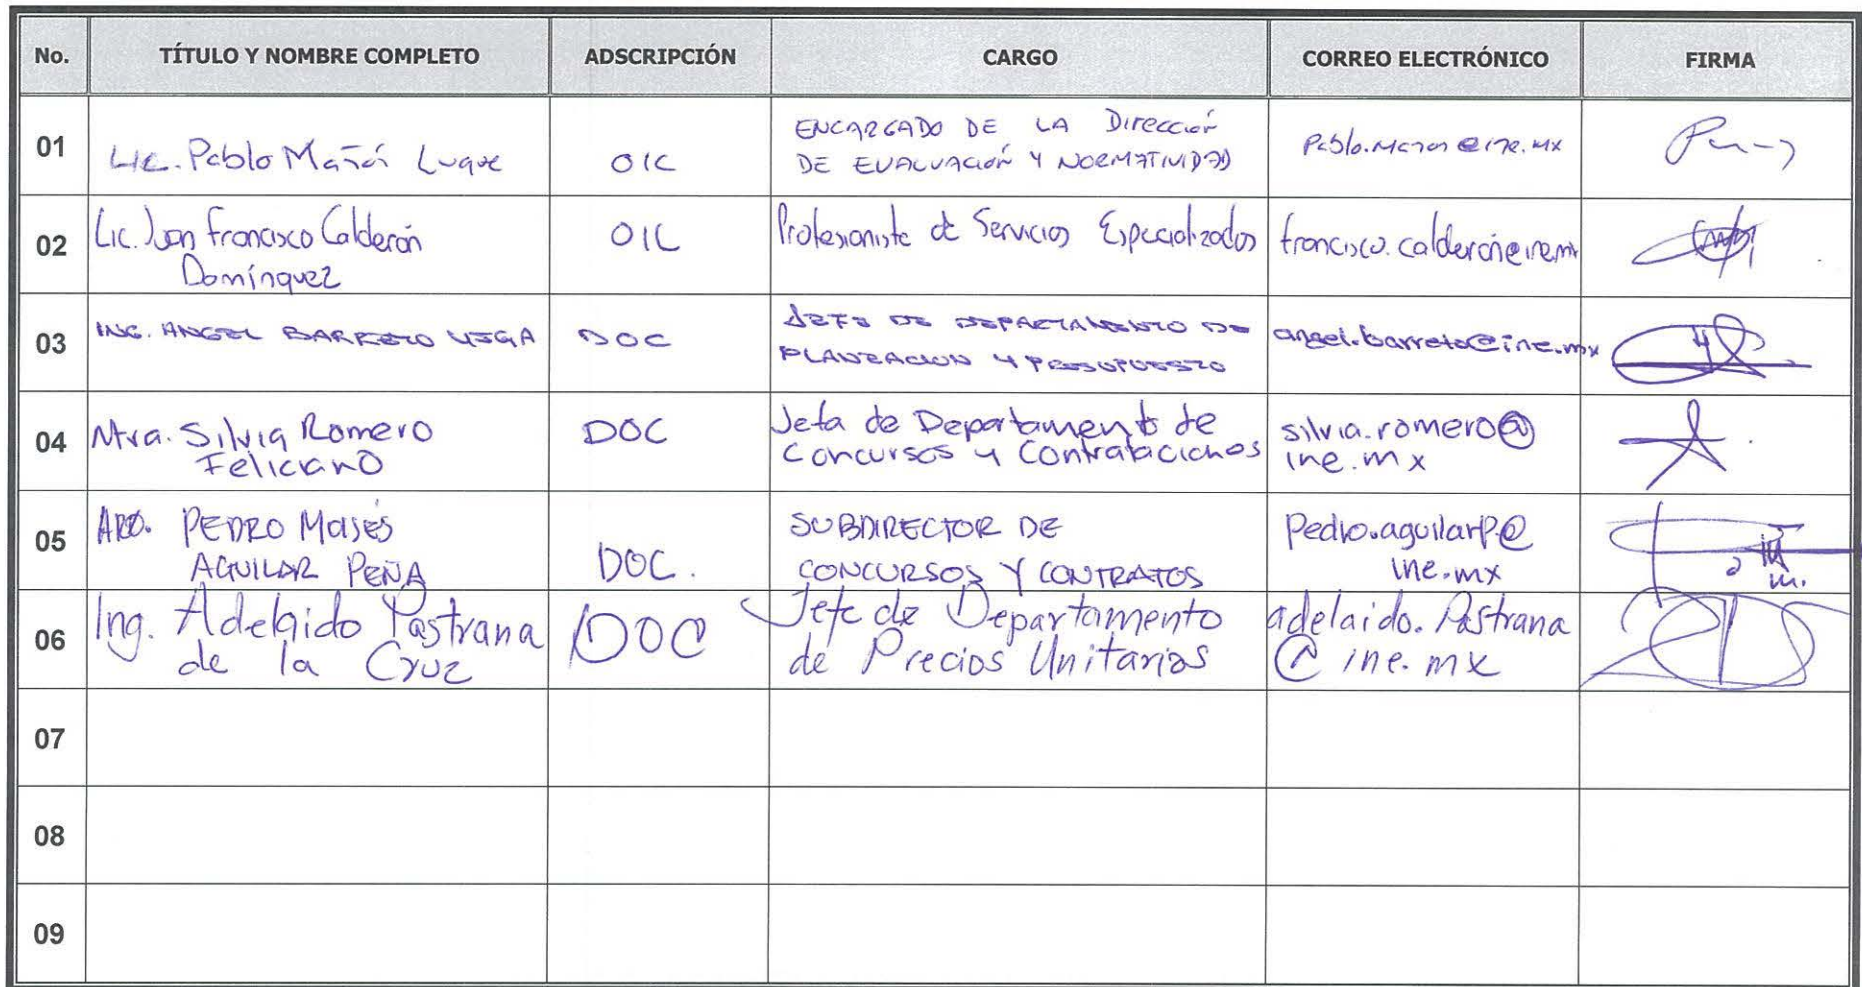 No. TÍTULO Y NOMBRE COMPLETO ADSCRIPCIÓN CARGO CORREO ELECTRÓNICO FIRMA
01 Lic. Pablo Mañón Luque OIC ENCARGADO DE LA Dirección
DE EVALUACIÓN Y NORMATIVIDAD pablo.manon@ine.mx
02 Lic. Juan Francisco Calderón
Domínguez OIC Profesionista de Servicios Especializados francisco.calderon@ine.mx
03 ING. ANGEL BARRETO VEGA DOC JEFE DE DEPARTAMENTO DE
PLANEACION Y PRESUPUESTO angel.barreto@ine.mx
04 Mtra. Silvia Romero
Feliciano DOC Jefa de Departamento de
Concursos y Contrataciones silvia.romero@
ine.mx
05 ARQ. PEDRO MOISÉS
AGUILAR PEÑA DOC. SUBDIRECTOR DE
CONCURSOS Y CONTRATOS pedro.aguilarp@
ine.mx
06 Ing. Adelaido Pastrana
de la Cruz DOC Jefe de Departamento
de Precios Unitarios adelaido.Pastrana
@ine.mx
07
08
09